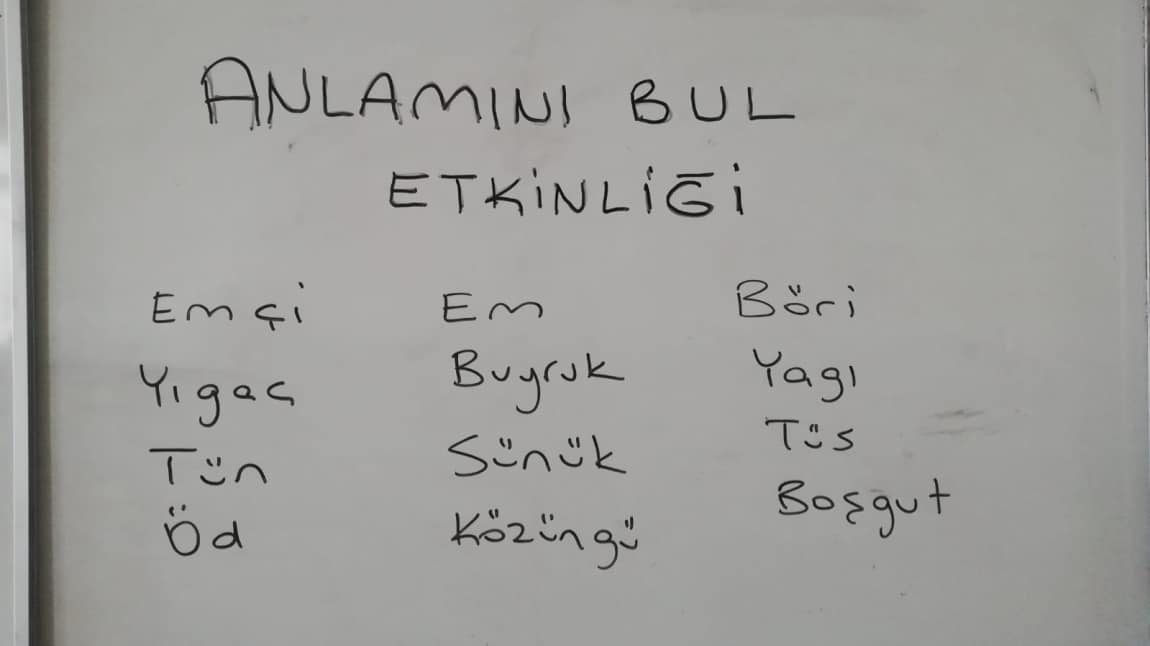 ANLAMINI BUL
ETKİNLİĞİ
Emçi Em Böri
Yıgaç Buyruk Yagı
Tün Sünük Tüs
Öd Közüngü Boşgut